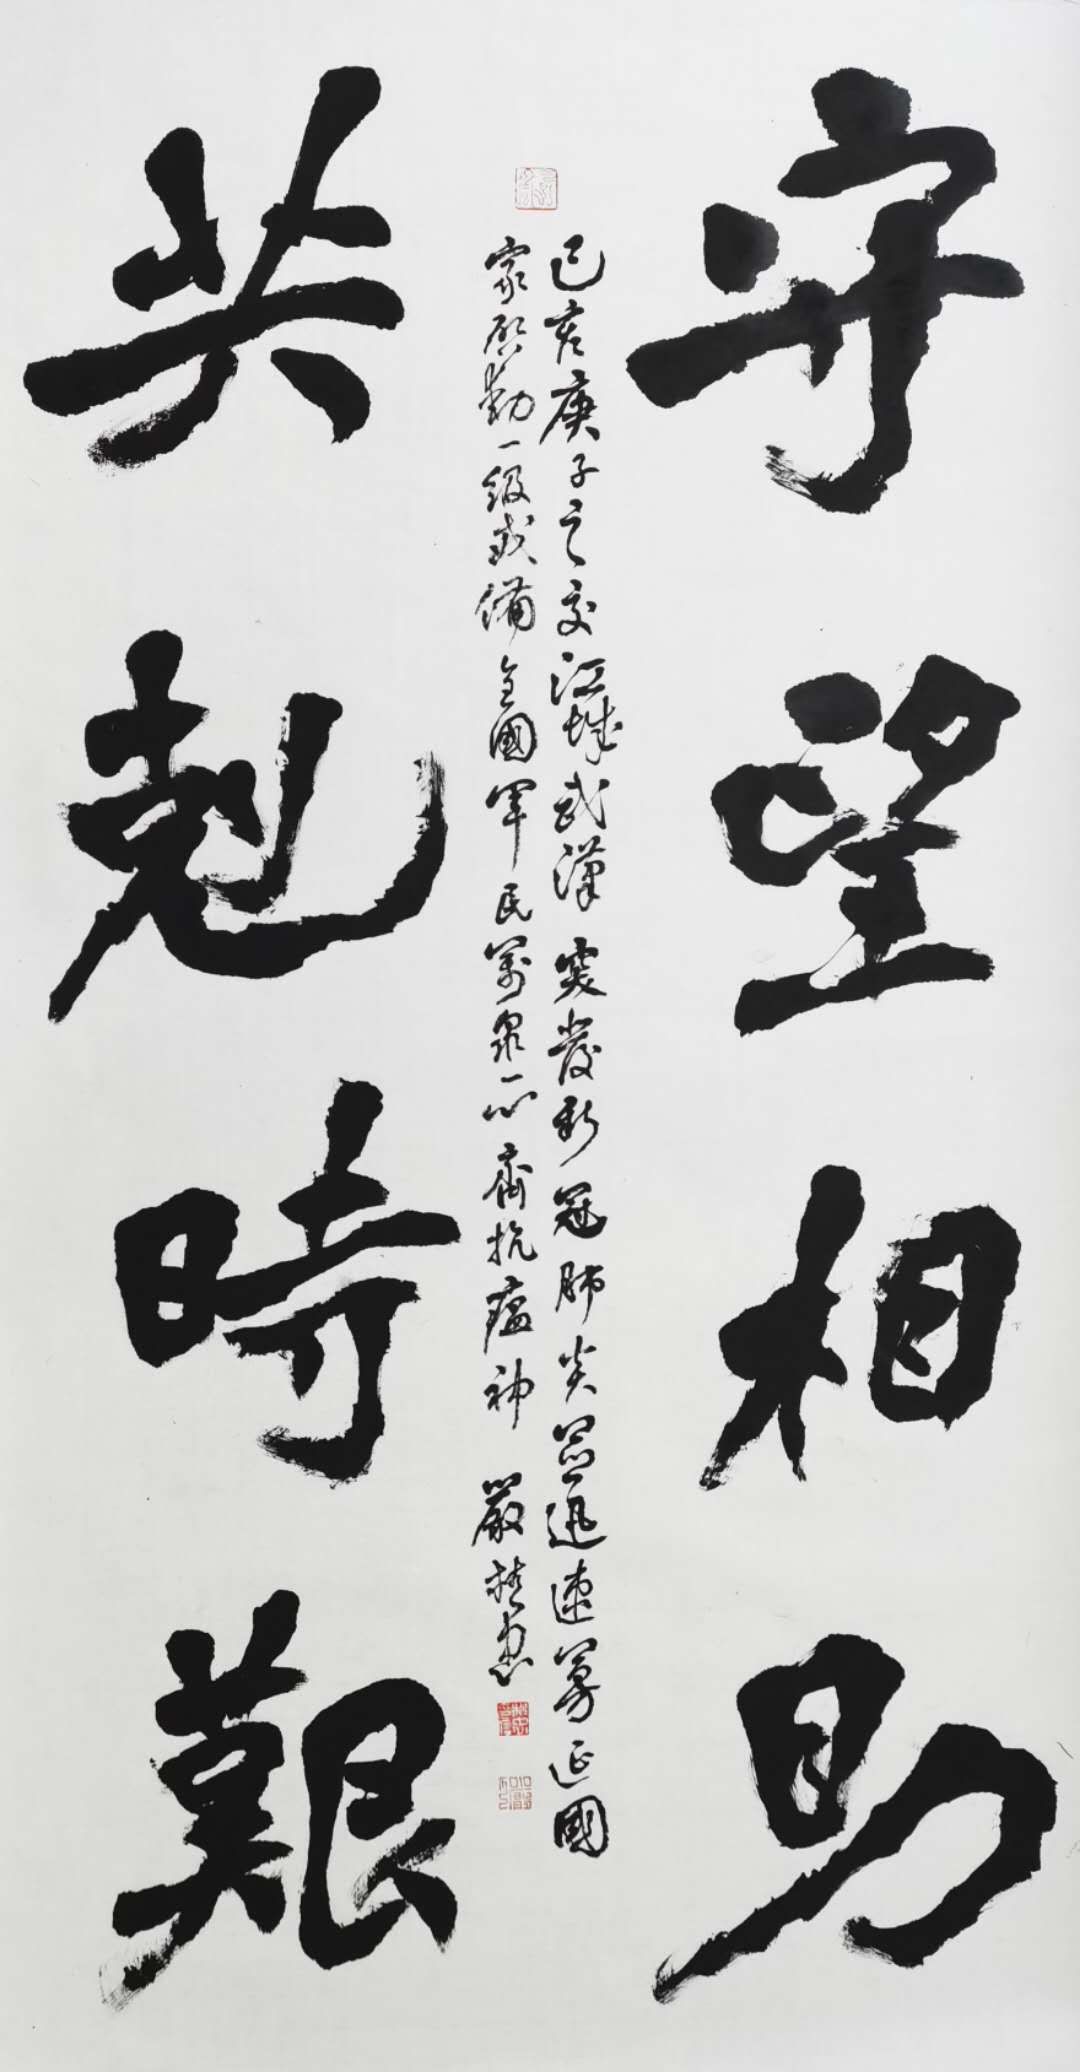 守望相助
共剋時艱
己亥庚子之交江城武漢突發新冠肺炎並迅速蔓延國
家啟動一級戒備全國軍民萬眾一心齊抗瘟神 嚴楚忠